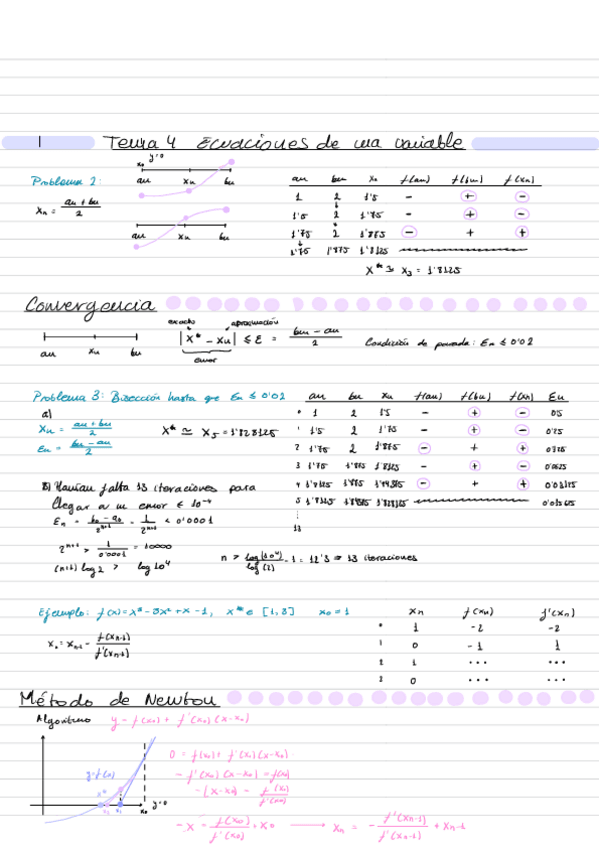 1 Tema 4 Ecuaciones de una variable
x₀ y=0
Problema 2:
an xn bn
xn = (an + bn)/2
an xn bn
an bn xn f(an) f(bn) f(xn)
1 2 1'5 - + -
1'5 2 1'75 - + -
1'75 2 1'875 - + +
1'75 1'875 1'8125
x* ≃ x₃ = 1'8125
Convergencia
an xn bn
exacto aproximación
|x* - xn| ≤ E = (bn - an)/2
error
Condición de parada: En ≤ 0'02
Problema 3: Bisección hasta que En ≤ 0'02
a)
xn = (an + bn)/2
En = (bn - an)/2
x* ≃ x₅ = 1'828125
an bn xn f(an) f(bn) f(xn) En
0 1 2 1'5 - + - 0'5
1 1'5 2 1'75 - + - 0'25
2 1'75 2 1'875 - + + 0'125
3 1'75 1'875 1'8125 - + - 0'0625
4 1'8125 1'875 - + + 0'03125
5 1'8125 1'828125 0'015625
⋮
13
b) Harían falta 13 iteraciones para
llegar a un error ≤ 10⁻⁴
En = (b₀ - a₀)/2ⁿ⁺¹ = 1/2ⁿ⁺¹ < 0'0001
2ⁿ⁺¹ > 1/0'0001 = 10000
(n+1) log 2 > log 10⁴
n > log(10⁴)/log(2) - 1 = 12'3 ⇒ 13 iteraciones
Ejemplo: f(x) = x³ - 3x² + x - 1, x* ∈ [1,3] x₀ = 1
xn = xn-1 - f(xn-1)/f'(xn-1)
xn f(xn) f'(xn)
0 1 -2 -2
1 0 -1 1
2 1 ... ...
3 0 ... ...
Método de Newton
Algoritmo y = f(x₀) + f'(x₀)(x-x₀)
0 = f(x₀) + f'(x₀)(x-x₀)
- f'(x₀)(x-x₀) = f(x₀)
-(x-x₀) = f(x₀)/f'(x₀)
-x = f(x₀)/f'(x₀) + x₀ → xn = - f'(xn-1)/f'(xn-1) + xn-1
y=f(x)
x*
x₀ y=0